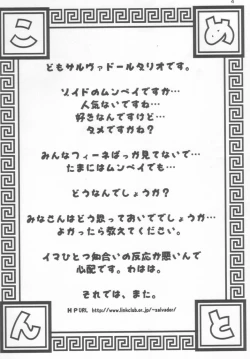 こめんと
どもサルヴァドールタリオです。
ゾイドのムンベイですか…
人気ないですね…
好きなんですけど…
ダメですかね？
みんなフィーネばっか見てないで…
たまにはムンベイでも…
どうなんでしょうか？
みなさんはどう思っておいででしょうか…
よかったら教えてください。
イマひとつ知合いの反応が悪いんで
心配です。わはは。
それでは、また。
ＨＰURL http://www.linkclub.or.jp/~salvador/